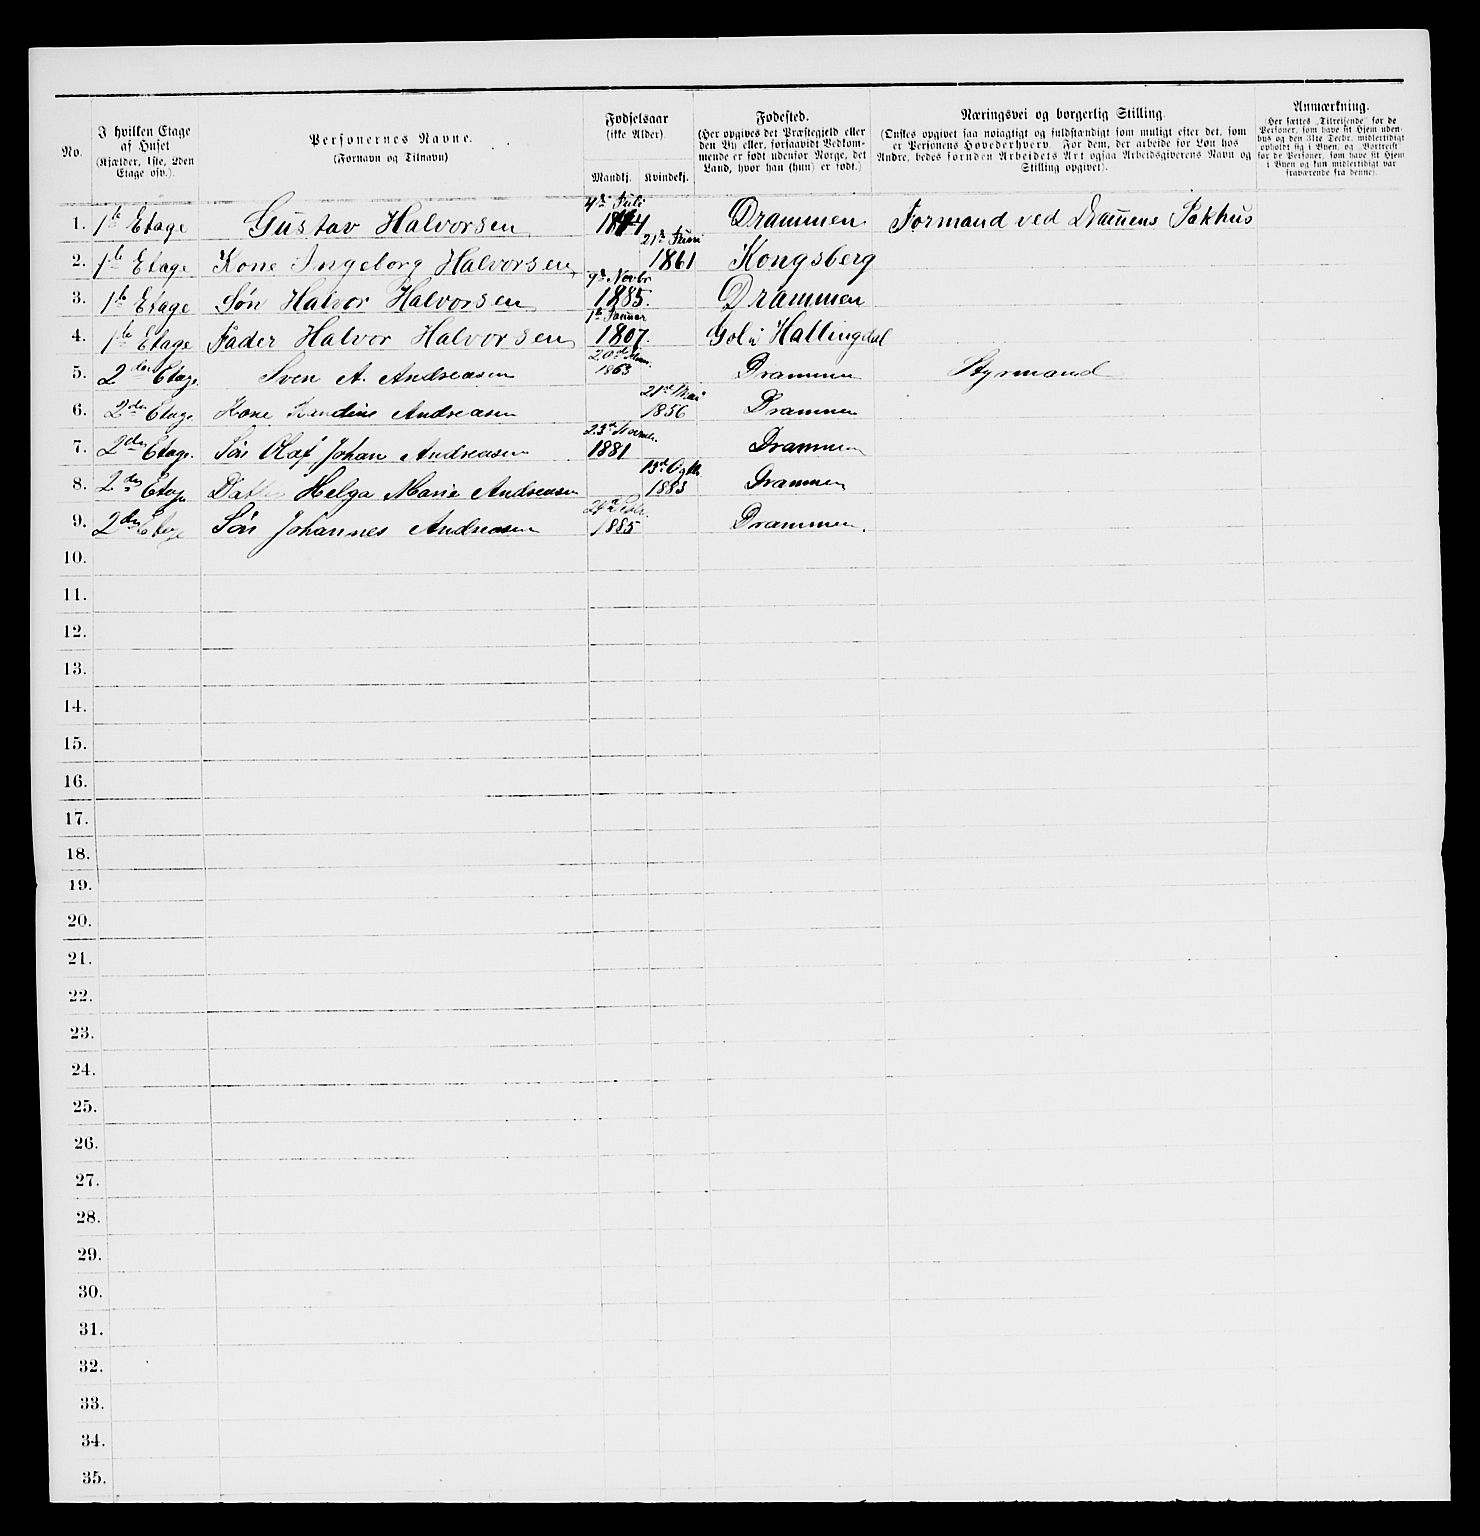 No.
I hvilken Etage af Huset (Kjælder, 1ste, 2den Etage osv.).
Personernes Navne. (Fornavn og Tilnavn)
Fødselsaar (ikke Alder).
Mandkj. Kvindekj.
Fødested. (Her opgives det Præstegjeld eller den By eller, forsaavidt Vedkommende er født udenfor Norge, det Land, hvor han (hun) er født.)
Næringsvei og borgerlig Stilling. (Ønskes opgivet saa nøiagtigt og fuldstændigt som muligt efter det, som er Personens Hovederhverv. For dem, der arbeide for Løn hos Andre, bedes foruden Arbeidets Art ogsaa Arbeidsgiverens Navn og Stilling opgivet).
Anmærkning. (Her sættes „Tilreisende“ for de Personer, som have sit Hjem udenbys og den 31te Decbr. midlertidigt opholdt sig i Byen, og „Bortreist“ for de Personer, som have sit Hjem i Byen og kun midlertidigt var fraværende fra denne).
1. 1te Etage Gustav Halvorsen 4de Juli 1844 Drammen Formand ved Dramens Pakhus
2. 1te Etage Kone Ingeborg Halvorsen 21de Juni 1861 Kongsberg
3. 1te Etage Søn Halvor Halvorsen 9de Novbr 1885. Drammen
4. 1te Etage Fader Halvor Halvorsen 1te Januar 1807. Gol i Hallingdal
5. 2den Etage Sven A. Andreasen 20de 1863 Drammen Styrmand
6. 2den Etage Kone Andreasen 21de Mai 1856 Drammen
7. 2den Etage. Søn Olaf Johan Andreasen 23de 1881 Drammen
8. 2den Etage Datter Helga Marie Andreasen 13de 1883 Drammen
9. 2den Etage Søn Johannes Andreasen 1885 Drammen.
10.
11.
12.
13.
14.
15.
16.
17.
18.
19.
20.
21.
22.
23.
24.
25.
26.
27.
28.
29.
30.
31.
32.
33.
34.
35.